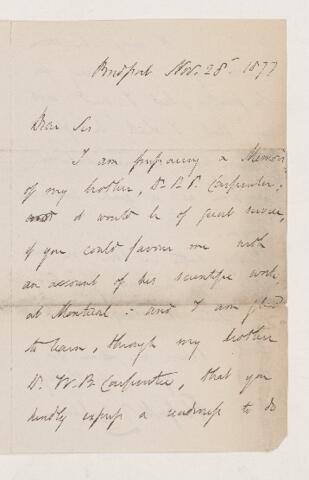 Bridport Nov. 28. 1877
Dear Sir
I am preparing a Memoir
of my brother, Dr. P. P. Carpenter,
and it would be of great service,
if you could favour me with
an account of his scientific work,
at Montreal: - and I am glad
to learn, through my brother
Dr. W. B. Carpenter, that you
kindly express a readiness to do